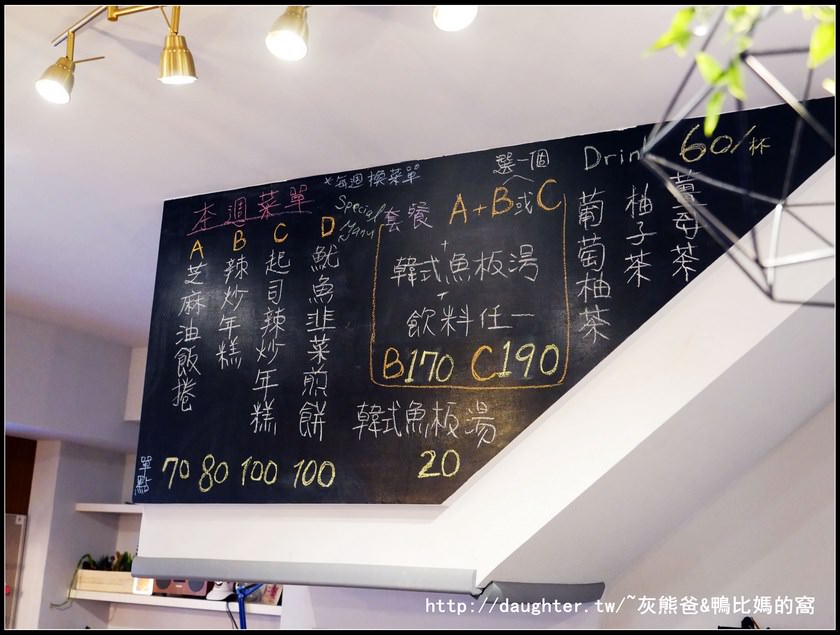 *每週換菜單
本週菜單
Special
Manu
A
芝麻油飯捲
B
辣炒年糕
C
起司辣炒年糕
D
魷魚韭菜煎餅
單點
70 80 100 100
選一個
套餐 A+B或C
+
韓式魚板湯
+
飲料任一
B170 C190
韓式魚板湯
20
Drin
60/杯
葡萄柚茶
柚子茶
薑母茶
http://daughter.tw/~灰熊爸&鴨比媽的窩